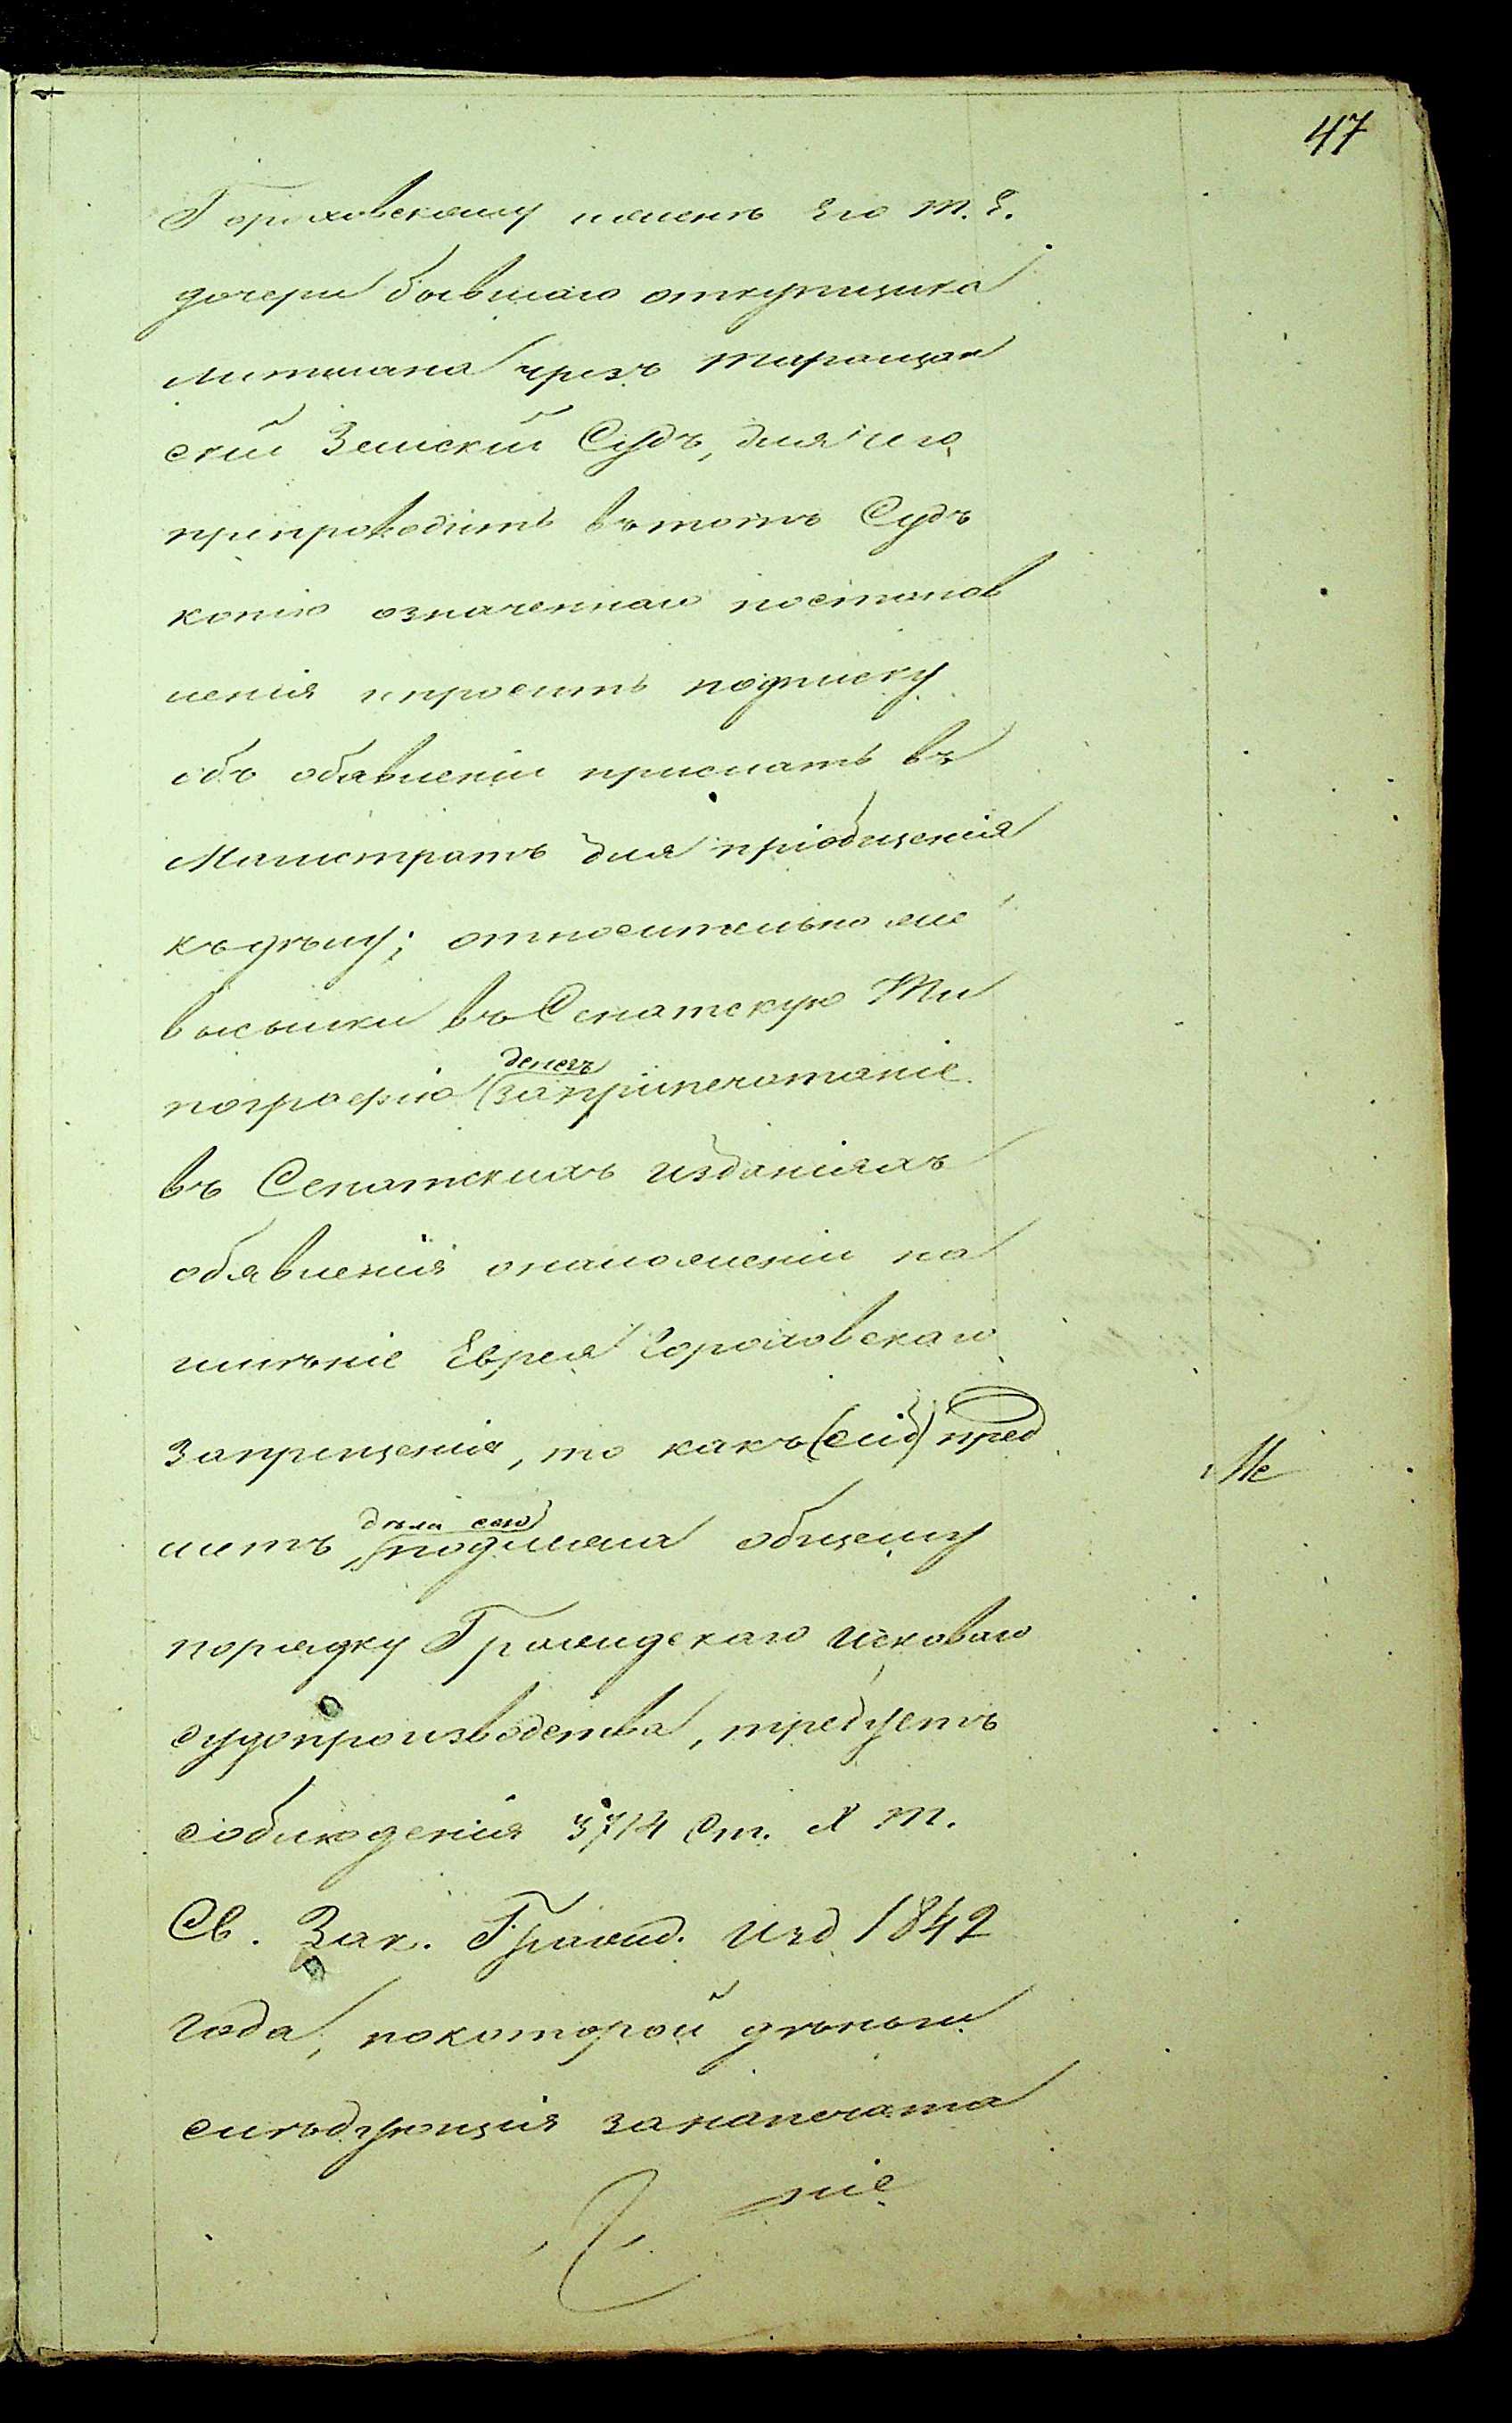 47
Гороховскому женѣ его т. е.
дочери бывшаго откупщика
Литмана чрезъ Таращан
скій Земскій Судъ, для чего
препроводить въ тотъ Судъ
копію означеннаго постанов
ленія и просить подписку
объ обявленіи прислать въ
Магистратъ для пріобщенія
къ дѣлу; относительно же
высылки въ Сенатскую Ти
денегъ
пографію за припечатаніе
въ Сенатскихъ изданіяхъ
обявленія о наложеніи на
имѣніе Еврея Гороховскаго
запрещенія, то какъ (сей) пред
Ме
дѣла сего
метъ подлежа общему
порядку Гражидскаго исковаго
судопроизводства, требуетъ
соблюденія 3714 ст. X т.
Св. Зак. Гражд. изд 1842
года, по которой деньги
слѣдующія за напечата
ніе